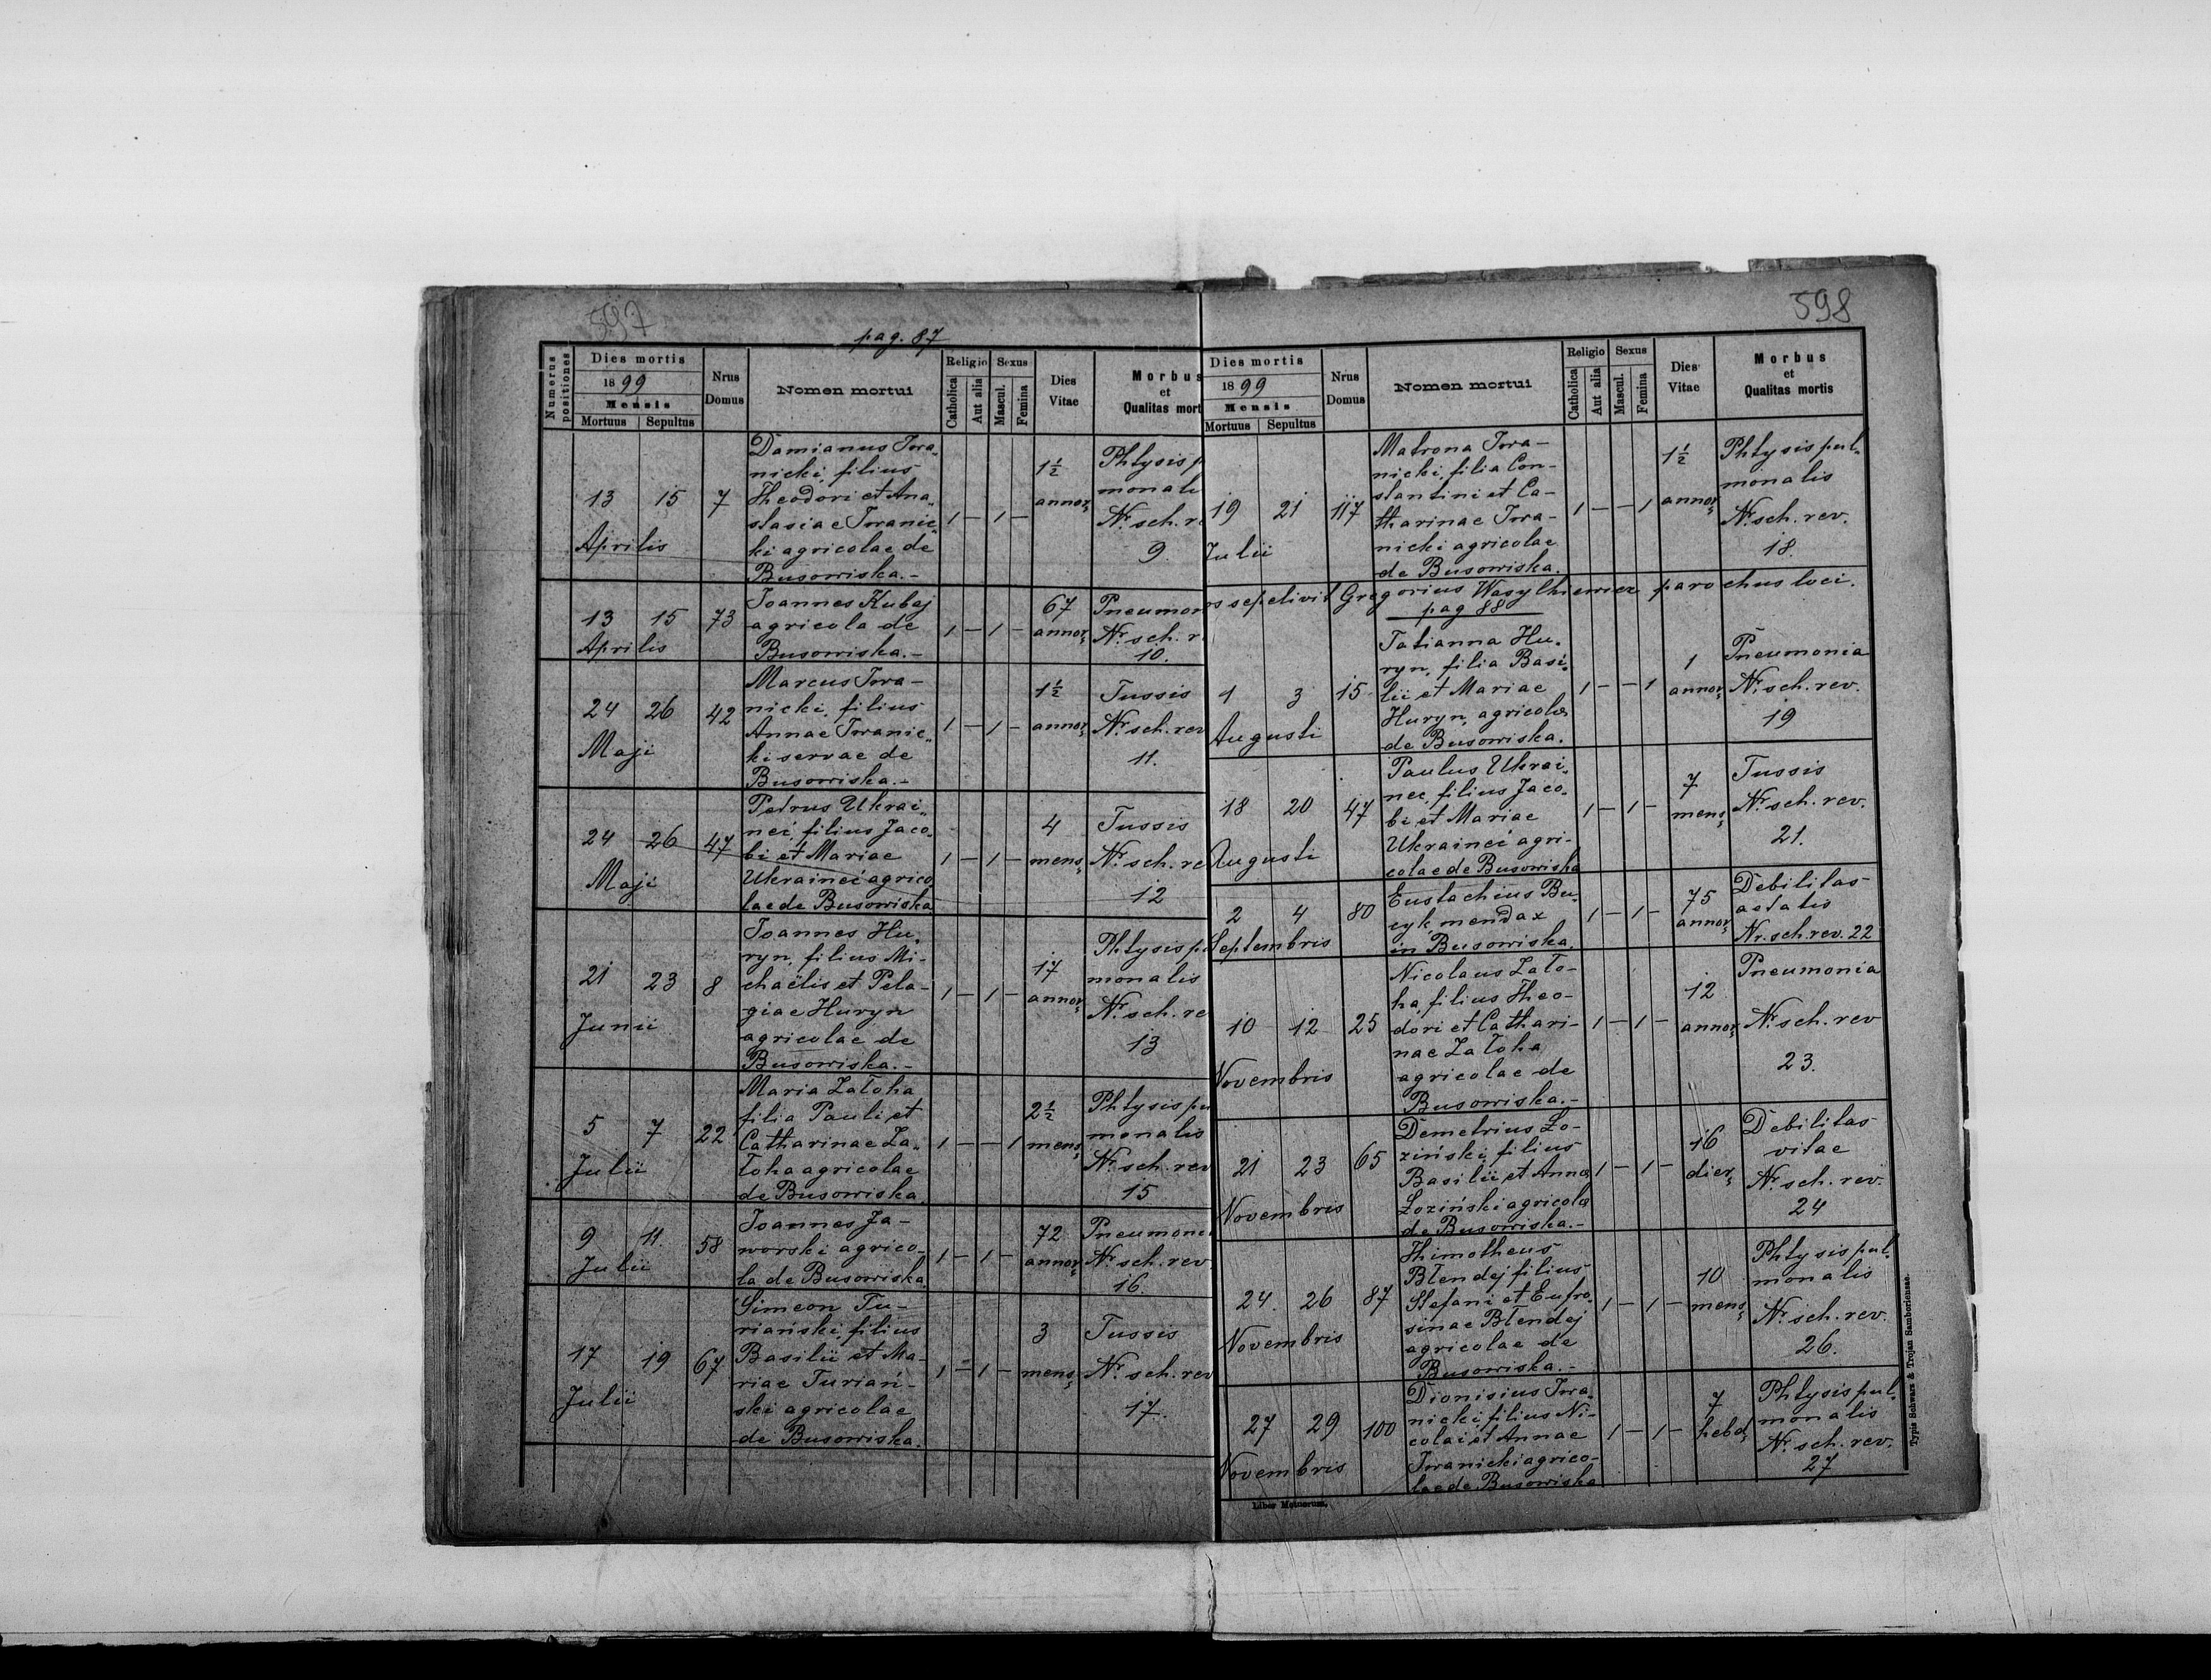 597
pag. 87
Numerus positiones
Dies mortis
1899
Mensis
Mortuus Sepultus
Nrus Domus
Nomen mortui
Religio
Catholica
Aut alia
Sexus
Mascul.
Femina
Dies Vitae
Morbus
et
Qualitas mort
13 15 7
Aprilis
Damianus Iwa„
nicki, filius
Theodori et Ana„
stasiae Iwanic„
ki agricolae de
Busowiska.-
1 – 1 –
1½
annor.
Phtysis p
monali
Nr. sch. re
9.
13 15 73
Aprilis
Joannes Kubaj
agricola de
Busowiska.-
1 – 1 –
67
annor.
Pneumon
Nr. sch. r
10.
24 26 42
Maji
Marcus Iwa-
nicki, filius
Annae Iwanic„
ki servae de
Busowiska.-
1 – 1 –
1½
annor.
Tussis
Nr. sch. rev
11.
24 26 47
Maji
Petrus Ukrai„
neć, filius Jaco„
bi et Mariae
Ukraineć agrico
lae de Busowiska
1 – 1 –
4
mens.
Tussis
Nr. sch. re
12
21 23 8
Junii
Joannes Hu„
ryn, filius Mi-
chaëlis et Pela-
giae Huryn
agricolae de
Busowiska.-
1 – 1 –
17
annor.
Phtysis pu
monalis
Nr. sch. re
13
5 7 22
Julii
Maria Zatoha
filia Pauli et
Catharinae Za„
toha agricolae
de Busowiska.
1 – – 1
2½
mens.
Phtysis pu
monalis
Nr. sch. rev
15
9 11. 58
Julii
Joannes Ja-
worski agrico-
la de Busowiska.
1 – 1 –
72
annor.
Pneumoni
Nr. sch. rev
16.
17 19 67
Julii
Simeon Tu-
riański, filius
Basilii et Ma-
riae Turiań-
ski agricolae
de Busowiska.
1 – 1 –
3
mens.
Tussis
Nr. sch. rev
17.
598
Dies mortis
1899
Mensis
Mortuus Sepultus
Nrus Domus
Nomen mortui
Religio
Catholica
Aut alia
Sexus
Mascul.
Femina
Dies Vitae
Morbus
et
Qualitas mortis
19 21 117
Julii
Matrona Iwa-
nicki, filia Con-
stantini et Ca-
tharinae Iwa-
nicki agricolae
de Busowiska.
1 – – 1
1½
annor.
Phtysis pul„
monalis
Nr. sch. rev.
18.
os sepelivit Gregorius Wasylkiewicz parochus loci.
pag 88
1 3 15
Augusti
Tatianna Hu„
ryn, filia Basi„
lii et Mariae
Huryn, agricolae
de Busowiska.
1 – – 1
1
annor.
Pneumonia
Nr. sch. rev.
19
18 20 47
Augusti
Paulus Ukrai„
nec, filius Jaco„
bi et Mariae
Ukraineć agri-
colae de Busowiska
1 – 1 –
7
mens.
Tussis
Nr. sch. rev.
21.
2 4 80
Septembris
Eustachius Bu„
cyk, mendax
in Busowiska.
1 – 1 –
75
annor.
Debilitas
aetatis
Nr. sch. rev. 22
10 12 25
Novembris
Nicolaus Zato-
ha, filius Theo-
dori et Cathari-
nae Zatoha
agricolae de
Busowiska.-
1 – 1 –
12
annor.
Pneumonia
Nr. sch. rev
23.
21 23 65
Novembris
Demetrius Ło-
ziński, filius
Basilii et Annae
Łoziński agricolae
de Busowiska.-
1 – 1 –
16
dier.
Debilitas
vitae
Nr. sch. rev.
24
24. 26 87
Novembris
Thimotheus
Błendej filius
Stefani et Eufro„
sinae Błendej
agricolae de
Busowiska.-
1 – 1 –
10
mens.
Phtysis pul„
monalis
Nr. sch. rev.
26.
27 29 100
Novembris
Dionisius Iwa„
nicki filius Ni-
colai et Annae
Iwanicki agrico-
lae de Busowiska
1 – 1 –
7
hebd.
Phtysis pul„
monalis
Nr. sch. rev.
27
Liber Motuorum.
Typis Schwarz & Trojan Samboriensae.